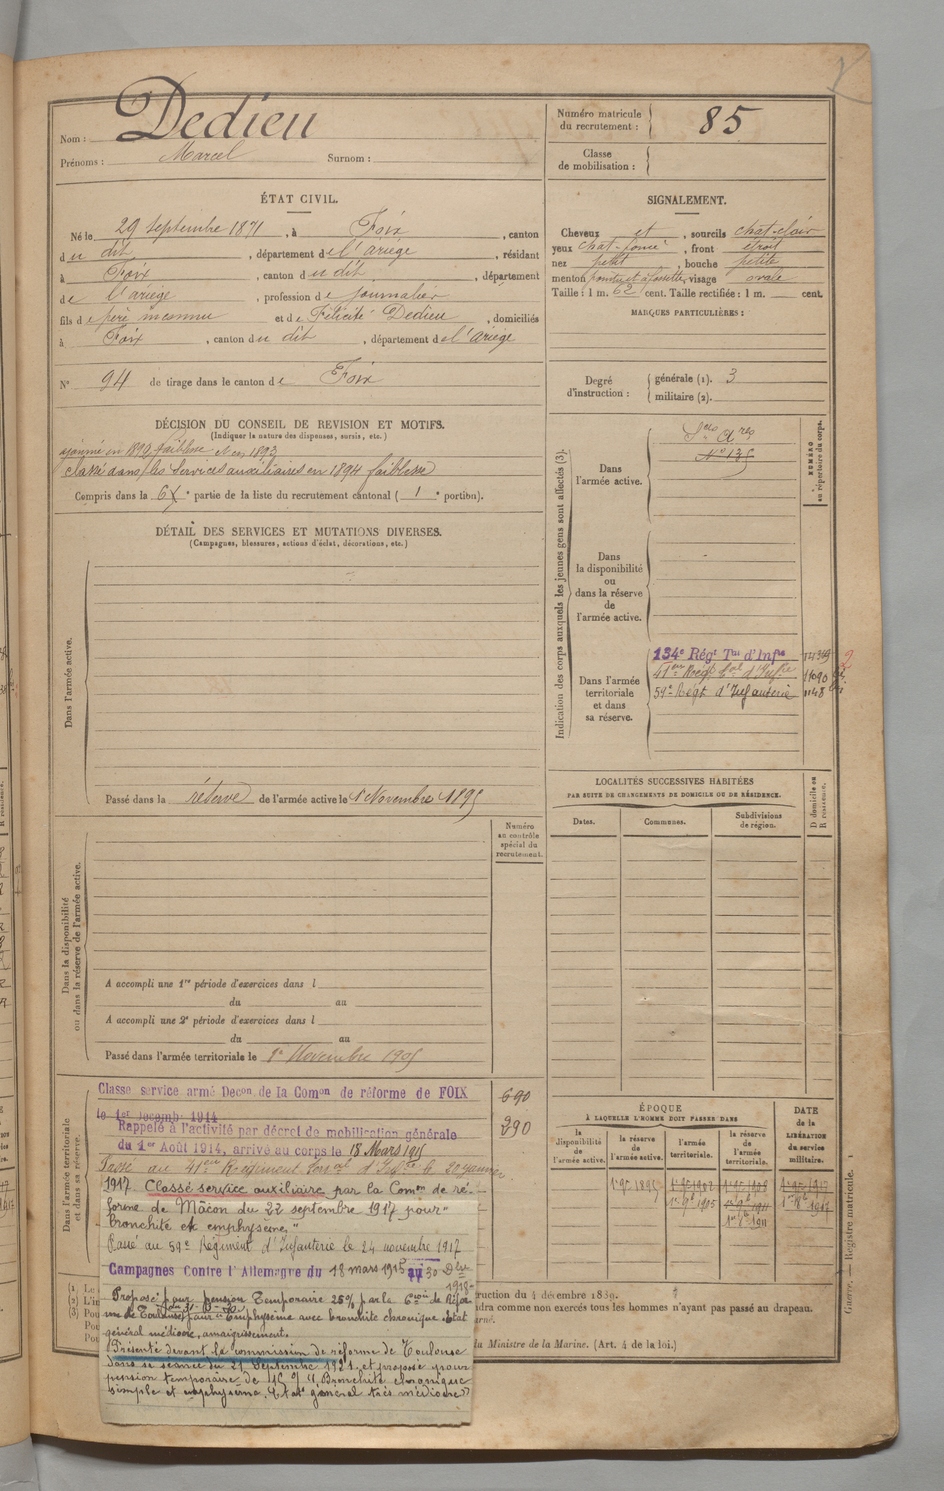 Nom : Dedieu
Prénoms : Marcel Surnom :
Numéro matricule du recrutement : 85
Classe de mobilisation :
ÉTAT CIVIL.
Né le 29 Septembre 1871, à Foix, canton
du dit, département de l'ariège, résidant
à Foix, canton du dit, département
de l'ariège, profession de journalier
fils de père inconnu et de Félicité Dedieu, domiciliés
à Foix, canton du dit, département de l'ariège
N° 94 de tirage dans le canton de Foix
SIGNALEMENT.
Cheveux et, sourcils chat-clair
yeux chat-foncé, front étroit
nez petit, bouche petite
menton pointu et à fossette, visage ovale
Taille : 1 m. 62 cent. Taille rectifiée : 1 m. cent.
MARQUES PARTICULIÈRES :
Degré d'instruction : générale (1). 3
militaire (2).
DÉCISION DU CONSEIL DE REVISION ET MOTIFS.
(Indiquer la nature des dispenses, sursis, etc.)
ajourné en 1892, faiblesse et en 1893
classé dans les services auxiliaires en 1894 faiblesse
Compris dans la 6e partie de la liste du recrutement cantonal (1e portion).
DÉTAIL DES SERVICES ET MUTATIONS DIVERSES.
(Campagnes, blessures, actions d'éclat, décorations, etc.)
Dans l'armée active.
Passé dans la réserve de l'armée active le 1 Novembre 1895
Indication des corps auxquels les jeunes gens sont affectés (3).
NUMÉRO au répertoire du corps.
Dans l'armée active.
Sces Ares
N° 135
Dans la disponibilité ou dans la réserve de l'armée active.
Dans l'armée territoriale et dans sa réserve.
134e Régt Tal d'Infie
41eme Régt Cal d'Infie 11090
59e Régt d'Infanterie 1148
LOCALITÉS SUCCESSIVES HABITÉES
PAR SUITE DE CHANGEMENTS DE DOMICILE OU DE RÉSIDENCE.
Dates. Communes. Subdivisions de région. D domicile ou R résidence.
Numéro au contrôle spécial du recrutement.
Dans la disponibilité ou dans la réserve de l'armée active.
A accompli une 1re période d'exercices dans l
du au
A accompli une 2e période d'exercices dans l
du au
Passé dans l'armée territoriale le 1er Novembre 1905
Dans l'armée territoriale et dans sa réserve.
Classe service armé Decon de la Comon de réforme de FOIX
le 1er Decembr 1914
690
390
Rappelé à l'activité par décret de mobilisation générale
du 1er Août 1914, arrivé au corps le 18 Mars 1915
Passé au 41eme Régiment d'Infie le 20 janvier
1917. Classé service auxiliaire par la Comon de ré-
forme de Mâcon du 22 septembre 1917 pour "
bronchite et emphysème."
Passé au 59e Régiment d'Infanterie le 24 novembre 1917
Campagnes Contre l'Allemagne du 18 mars 1915 au 30 Dbre
1918
Proposé pour pension temporaire 25% par la Con de Réfor
me de Toulouse pour "Emphysème avec bronchite chronique. Etat
général médiocre, amaigrissement.
Présenté devant la commission de réforme de Toulouse
dans sa séance du 21 Septembre 1921 et proposé pour
pension temporaire de 15% "Bronchite chronique
simple et emphysème, Etat général très médiocre"
ÉPOQUE
À LAQUELLE L'HOMME DOIT PASSER DANS
la disponibilité de l'armée active. la réserve de l'armée active. l'armée territoriale. la réserve de l'armée territoriale.
DATE de la LIBÉRATION du service militaire.
1 9bre 1895
ruction du 4 décembre 1889.
dra comme non exercés tous les hommes n'ayant pas passé au drapeau.
du Ministre de la Marine. (Art. 4 de la loi.)
Guerre. — Registre matricule. 1